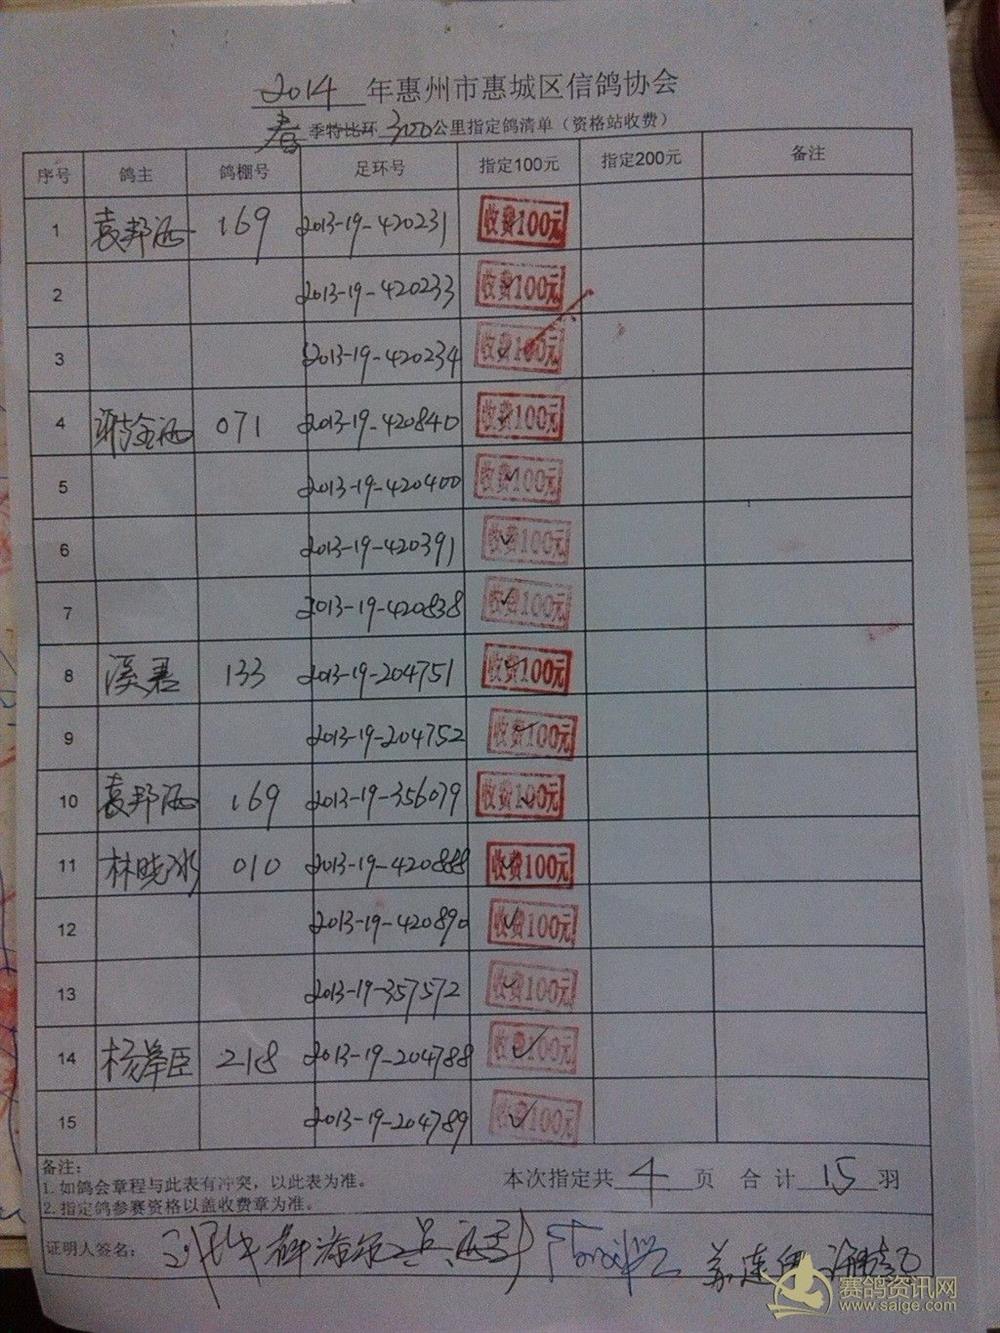 2014 年惠州市惠城区信鸽协会
春 季特比环 300公里指定鸽清单（资格站收费）
序号 鸽主 鸽棚号 足环号 指定100元 指定200元 备注
1 袁邦洒 169 2013-19-420231 收费100元
2 2013-19-420233 收费100元
3 2013-19-420234 收费100元
4 谢金洒 071 2013-19-420840 收费100元
5 2013-19-420400 收费100元
6 2013-19-420391 收费100元
7 2013-19-420838 收费100元
8 溪君 133 2013-19-204751 收费100元
9 2013-19-204752 收费100元
10 袁邦洒 169 2013-19-356079 收费100元
11 林晓冰 010 2013-19-420888 收费100元
12 2013-19-420890 收费100元
13 2013-19-357572 收费100元
14 杨举臣 218 2013-19-204788 收费100元
15 2013-19-204789 收费100元
备注：
1. 如鸽会章程与此表有冲突，以此表为准。
2. 指定鸽参赛资格以盖收费章为准。
本次指定共 4 页 合计 15 羽
证明人签名：
赛鸽资讯网
www.saige.com